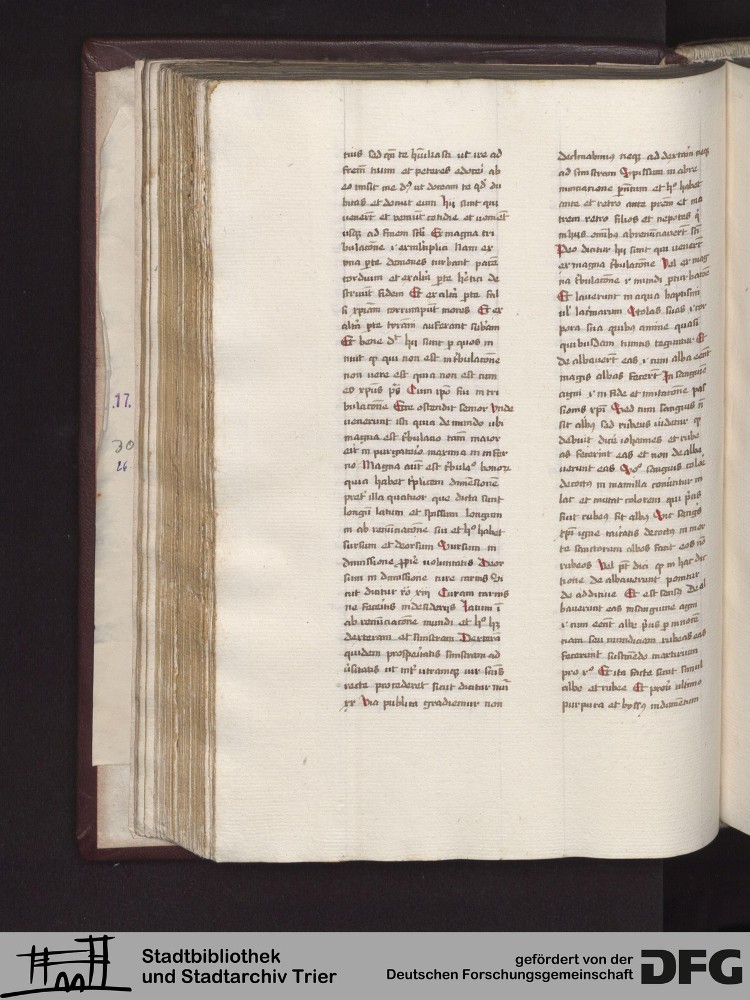 tuus sed qm te humiliasti ut ire ad
frem tuum et peteres edoceri ab
eo misit me ds ut doceam te qd du
bitas et docuit eum hii sunt qui
venert et veniut cotidie et vement
usq ad finem scli Ex magna tri
bulacone Nam ex
una pte demones turbant pacem
cordium et ex alia pte hetici de
struunt fidem Et ex alia pte fal
si xpiani corrumput mores Et ex
alia pte tyrani auferant subam
Et bene dr hii sunt p quos in
nuit q qui non est in tribulacone
non vere est quia non est cum
eo xpus ps Cum ipo sum in tri
bulacone Ecce ostendit senior Unde
venerunt isti quia de mundo ubi
magna est tribulacio tam maior
erit in purgatorio maxima in infer
no Magna aut est tribula bonorum
quia habet triplicem dimensionem
preter illa quatuor que dicta sunt
longum latum et spissum longum
in abrenunciacone sui et ho habet
sursum et deorsum Sursum in
dimissione proprie voluntatis Deor
sum in dimissione cure carnis Si
cut dicitur ro xiii Curam carnis
ne feceritis in desiderijs Latum i
abrenunciacone mundi et ho hz
dexteram et sinistram Dexteram
quidem prosperitatis sinistram ad
versitatis ut inter utramq vir scus
recte procederet sicut dicitur
xx Via publica gradiemur non
declinabimus neq ad dextram neq
ad sinistram Spissum in abre
nunciacione parentum et ho habet
ante et retro ante prem et ma
trem retro filios et nepotes
in hiis omibus abrenunciaverunt sci
Ideo dicitur hii sunt qui venert
ex magna tribulacone Vel ex mag
na tribulacone
Et laverunt in aqua baptismi
vel lacrimarum Stolas suas i cor
pora sua quibus anime quasi
quibusdam tunicis teguntur Et
dealbavert eas i cum alba eent
magis albas fecert In sanguine
agni i in fide et imitacone pas
sionis xpi Sed cum sanguis non
sit albus sed rubeus videtur q
debuit dicere iohannes et rube
as fecerunt eas et non dealba
verunt eas sanguis calore
decoctus in mamilla convertitur in
lac et mutat colorem qui prius
fuit rubeus fit albus Sic sanguis
igne caritatis decoctus in mor
te sanctorum albos facit eos non
rubeos Vel pt dici q in hac dic
tione dealbaverunt ponitur
de additive Et est sensus Deal
baverunt eas in sanguine agni
i cum eent albe prius p innocen
ciam seu mundiciam rubeas eas
fecerunt sustinendo martirium
pro xo Et ita facte sunt simul
albe et rubee Et prover ultimo
purpura et byssus indumentum
.17.
30
26
Stadtbibliothek
und Stadtarchiv Trier
gefördert von der
Deutschen Forschungsgemeinschaft
DFG